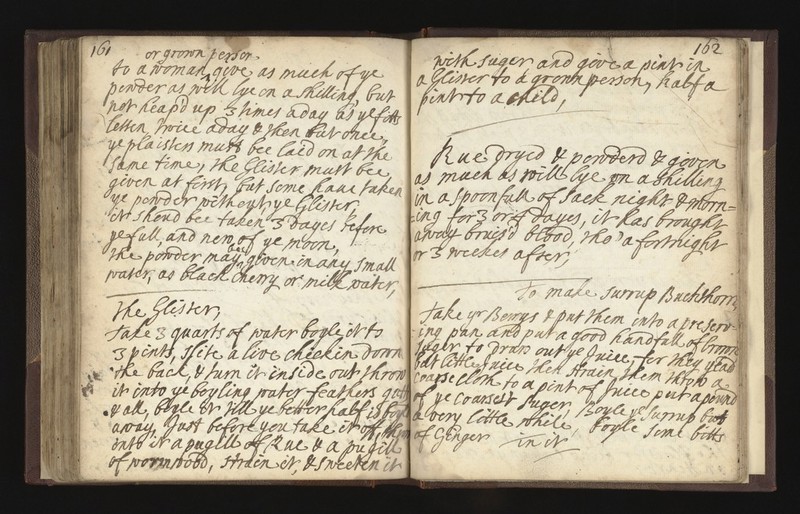 161
or grown person
to a woman give as much of ye
powder as will lye on a shilling but
not heap'd up 3 times a day as ye fitts
lessen, twice a day & then but once,
ye plaisters must bee laid on at the
same time, the Glister must bee
given at first, but some have taken
ye powder without ye Glister
it shoud bee taken 3 dayes before
ye full, and new of ye moon,
the powder may bee given in any small
water, as black cherry or milk water,
The Glister,
Take 3 quarts of water boyle it to
3 pints, slite a live chickin down
the back, & turn it inside out throw
it into ye boyling water feathers guts
& all, boyle it till ye better half is boyl
away, Just before you take it off throw
into it a pugill of Rue & a pugill
of wormwood, strain it, & sweeten it
162
with suger and give a pint in
a Glister to a grown person, half a
pint to a child,
Rue dryed & powderd & given
as much as will lye on a shilling
in a spoonfull of Sack night & morn=
=ing for 3 or 4 dayes, it has brought
away bruis'd blood, tho' a fortnight
or 3 weekes after,
To make Surrup Buckthorn
Take yr Berrys & put them into a preserv=
=ing pan and put a good handfull of brown
suger to draw out ye Juice for they yeald
but little Juice then strain them throw a
coarse cloth to a pint of Juice put a pound
of ye coarsest suger, Boyle ye Surrup but
a very little while, boyle some bitts
of Ginger in it